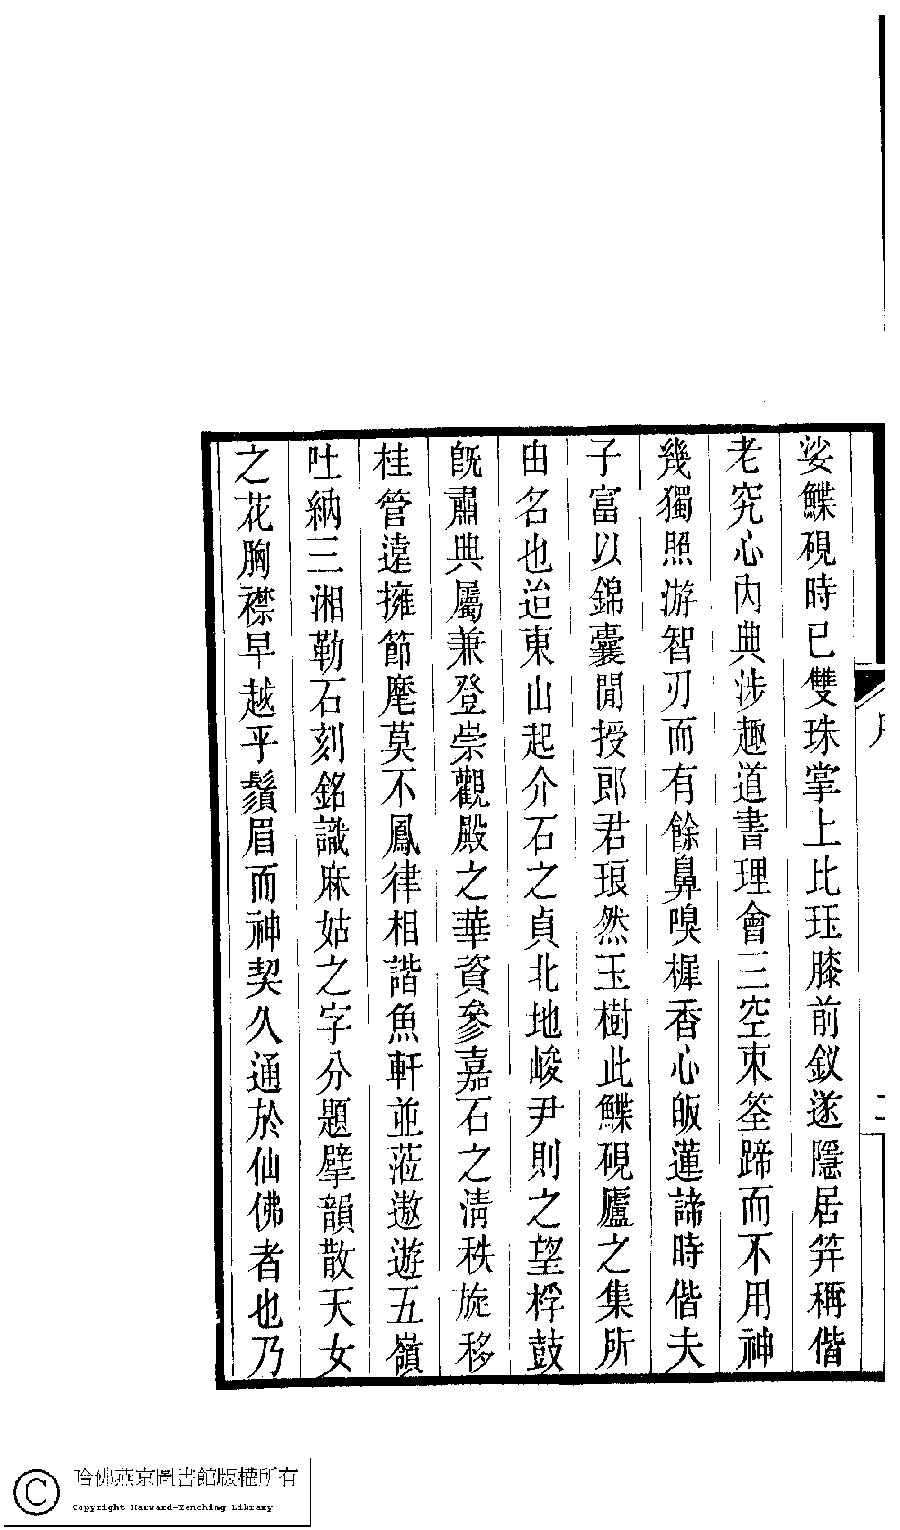 娑鰈硯時已雙珠掌上比珏膝前釵遂隱居筓稱偕
老究心內典涉趣道書理會三空束筌蹄而不用神
幾獨照游智刃而有餘鼻嗅樨香心皈蓮諦時偕夫
子富以錦囊閒授郎君琅然玉樹此鰈硯廬之集所
由名也迨東山起介石之貞北地峻尹則之望桴鼓
旣肅典屬兼登崇觀殿之華資參嘉石之淸秩旋移
桂管遠擁節麾莫不鳳律相諧魚軒並蒞遨遊五嶺
吐納三湘勒石刻銘識麻姑之字分題擘韻散天女
之花胸襟早越乎鬚眉而神契久通於仙佛者也乃
序
二
哈佛燕京圖書館版權所有
Copyright Harvard-Yenching Library